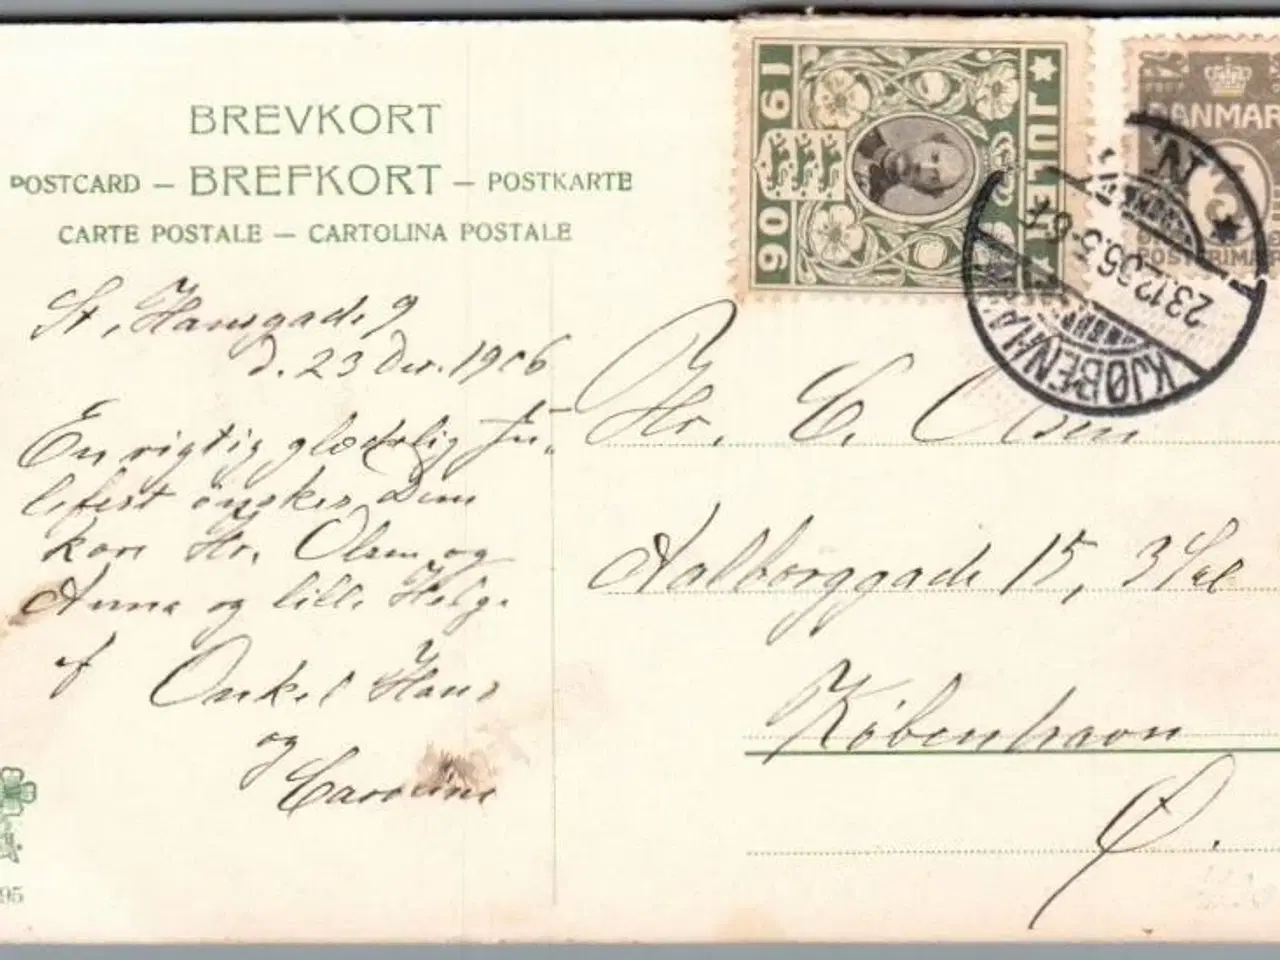 BREVKORT
POSTCARD — BREFKORT — POSTKARTE
CARTE POSTALE — CARTOLINA POSTALE
St. Hansgade 9
d. 23 Dec. 1906
En rigtig glædelig Ju-
lefest ønskes Dem
kære Hr. Olsen og
Anna og lille Helge
af Onkel Hans
og
Caroline
95
1906
JULEN
DANMARK
KJØBENHAVN N.
23.12.06.
Hr. C. Olsen
Aalborggade 15, 3 Sal
København
Ø.